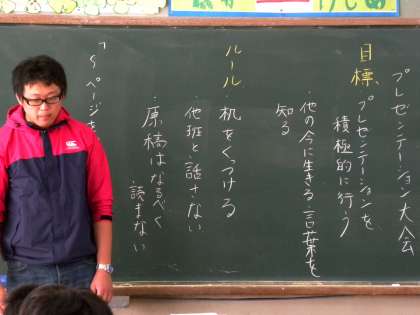 プレゼンテーション大会
目標・プレゼンテーションを
積極的に行う
・他の今に生きる言葉を
知る
ルール・机をくっつける
・他班と話さない
・原稿はなるべく
読まない
ページを